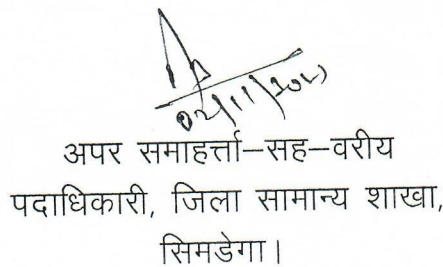 अपर समाहर्त्ता–सह–वरीय
पदाधिकारी, जिला सामान्य शाखा,
सिमडेगा।